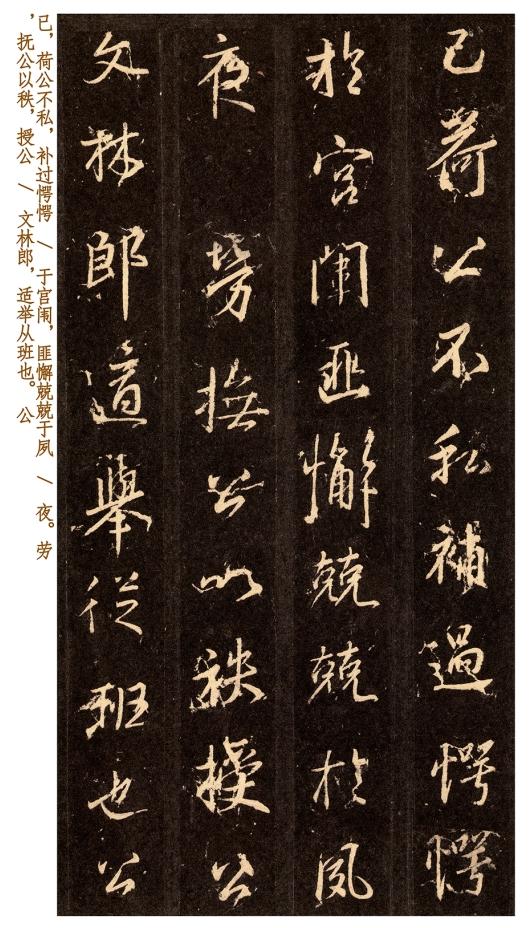 已荷公不私補過愕愕
於宮闈匪懈兢兢於夙
夜勞撫公以秩授公
文林郎適舉從班也公
已，荷公不私，补过愕愕 \ 于宫闱，匪懈兢兢于夙 \ 夜。劳
，抚公以秩，授公 \ 文林郎，适举从班也。 公